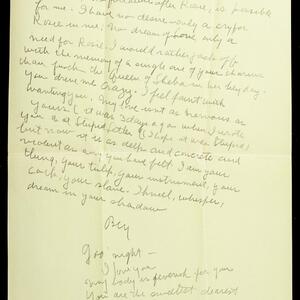 for me. I have no desire only a cry for
Rose in me. No dream of love only a
need for Rose. I would rather
with the memory of a single one of your
than the Queen of Sheba in her hey day.
You drive me crazy. I feel faint with
wanting you. My love isnt as nervous as
yours (it was 3 days ago when I wrote
you a stupid letter (I hope it was stupid)
but now it is as deep and concrete and
violent as any you have felt. I am your
thing, your tulip, your instrument, your
your slave. I kneel, whisper,
dream in your shadow
Ben
Goo' night —
I love you
my body is feverish for you
You are the sweetest dearest